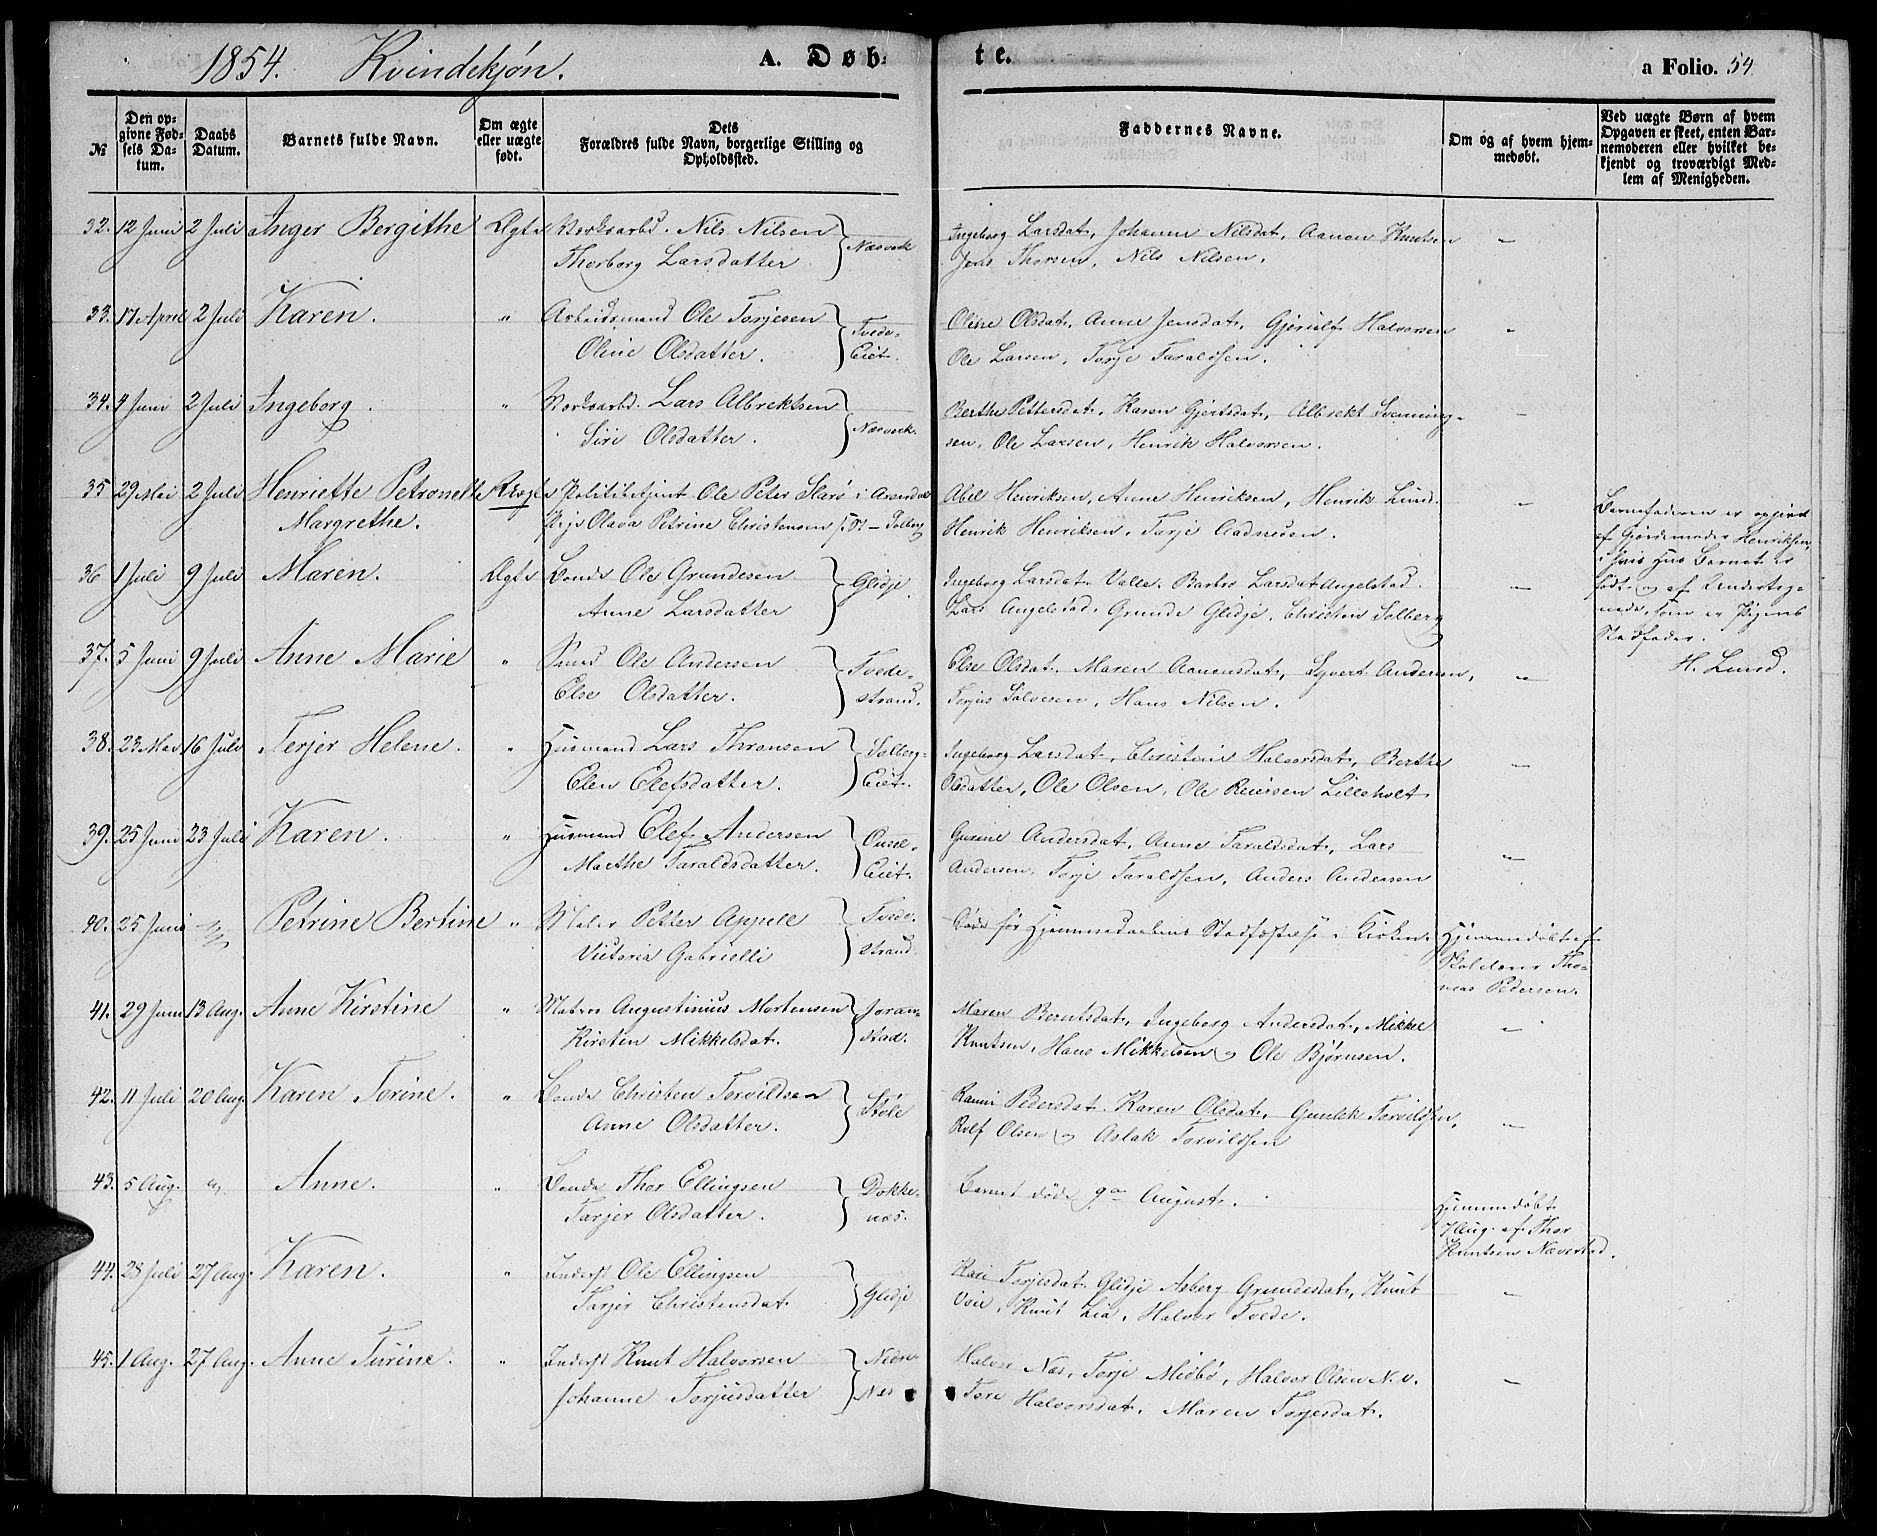 1854. Kvindekjøn. A. Døb- te. a Folio. 54
№ | Den opgivne Fødsels Datum. | Daabs Datum. | Barnets fulde Navn. | Om ægte eller uægte født. | Dets Forældres fulde Navn, borgerlige Stilling og Opholdssted. | Faddernes Navne. | Om og af hvem hjemmedøbt. | Ved uægte Børn af hvem Opgaven er skeet, enten Barnemoderen eller hvilket bekjendt og troværdigt Medlem af Menigheden.
32. 12 Juni 2 Juli Inger Bergithe Ægte Værksarbd. Nils Nilsen Næsverk Ingeborg Larsdat, Johanne Nilsdat, Aanon Knutsen "
Thorborg Larsdatter Jens Thorsen, Nils Nilsen.
33. 17 April 2 Juli Karen. " Arbeidsmand Ole Torjesen Tvede- Oline Olsdat, Anne Jensdat, Gjerulf Halvorsen "
Oline Olsdatter. Eiet. Ole Larsen, Torje Taraldsen.
34. 4 Juni 2 Juli Ingeborg. " Værksarbd. Lars Albrektsen Næsverk. Berthe Pettersdat, Karen Gjertsdat, Albrekt Svenning- "
Siri Olsdatter. sen, Ole Larsen, Henrik Halvorsen.
35 29 Mai 2 Juli Henriette Petronelle Uægte Politibetjent Ole Peter Skarø i Arendal Abel Henriksen, Anne Henriksen, Henrik Lund "
Margrethe. Pige Olava Petrine Christensen Solberg Henrik Henriksen, Torje Aadnesen.
Barnefaderen er opgivet
af Gjordemoder Henriksen,
i hvis Hus Barnet er
født og af Underteg-
nede, som er Pigens
Stedfader.
H. Lund.
36 1 Juli 9 Juli Maren. Ægte Bonde Ole Grundesen Glidje. Ingeborg Larsdat. Valle, Barbro Larsdat Angelstad "
Anne Larsdatter Lars Angelstad, Grunde Glidje, Christen Solberg
37. 5 Juni 9 Juli Anne Marie " Smed Ole Andersen Tvede- Else Olsdat, Maren Aanonsdat, Syvert Andersen, "
Else Olsdatter. strand. Torjus Salvesen, Hans Nilsen.
38. 23 Mai 16 Juli Terjer Helene. " Husmand Lars Thronsen Solberg- Ingeborg Larsdat, Christine Halvorsdat, Berthe "
Elen Elefsdatter. Eiet. Olsdatter, Ole Olsen, Ole Reiersen Lilleholt.
39. 25 Juni 23 Juli Karen. " Husmand Elef Andersen Gurine Andersdat, Anne Taraldsdat, Lars "
Marthe Taraldsdatter. Eiet. Andersen, Torje Taraldsen, Anders Andersen
40. 25 Juni " Petrine Bertine " Maler Petter Appell Tvede- Død før Hjemmedaabens Stadfæstelse i Kirken. Hjemmedøbt af
Victoria Gabrielli strand. Skolelærer Tho-
mas Pedersen.
41. 29 Juni 13 Aug. Anne Kirstine " Matros Augustinius Mortensen Joran- Maren Berntsdat, Ingeborg Andersdat, Mikkel "
Kirsten Mikkelsdat. stad. Knutsen, Hans Mikkelsen og Ole Bjørnsen.
42. 11 Juli 20 Aug. Karen Torine. " Bonde Christen Torvildsen Støle Ranni Pedersdat. Karen Olsdat, Gunlek Torvildsen, "
Anne Olsdatter. Rolf Olsen og Aslak Torvildsen
43. 5 Aug. " Anne. " Bonde Thor Ellingsen Dokke- Barnet døde 9de August. Hjemmedøbt
Tarjer Olsdatter. næs. 7 Aug. af Thor
Knutsen Næverstad.
44. 28 Juli 27 Aug. Karen. " Inderst Ole Ellingsen Glidje Kari Torjesdat. Glidje Asberg Grundesdat, Knut "
Tarjer Christensdat. Knut Lia, Halvor Tvede.
45. 1 Aug. 27 Aug. Anne Turine. " Inderst Knut Halvorsen Nedre- Halvor Næs, Torje Midbø, Halvor Olsen N.v. "
Johanne Torjusdatter Næs Tore Halvorsdat, Maren Torjesdat.